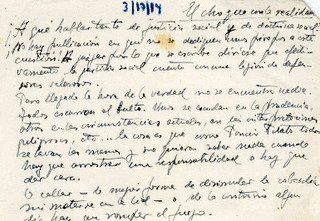 3/17/04
El choque con la realidad
¡A qué hablar tanto de justicia social y de doctrina social!
¡No hay publicación en que no se dediquen unos piropos a esta
cuestión! A juzgar por lo que se escribe diríase que efecti-
vamente la justicia social cuenta con una legión de defen-
sores
Pero llegada la hora de la verdad no se encuentra nadie.
Todos escurren el bulto. Unos se escudan en la prudencia,
otros en las circunstancias actuales, en las interpretaciones
peligrosas, etc... la cosa es que como Poncio Pilato todos
se lavan las manos y no quieren saber nada cuando
hay que arrostrar una responsabilidad o hay que
dar cara.
O callar - la mejor forma de disimular la cobardía
sin meterse en la - o de lo contrario algun
día hay que romper el fuego.